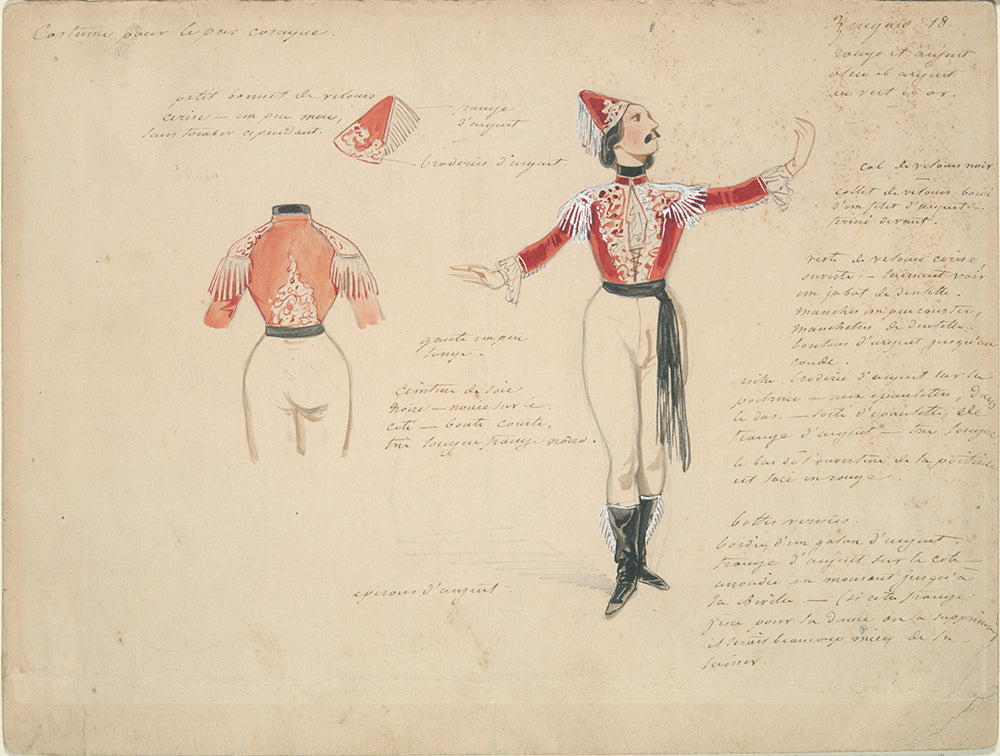 Costume pour le pas cosaque.
18.
rouge et argent
bleu et argent
ou vert et or.
petit bonnet de velours
cerise – un peu mou,
sans tomber cependant.
frange
d'argent
broderies d'argent
col de velours noir
collet de velours bordé
d'un filet d'argent –
fermé devant.
veste de velours cerise
ouverte – laissant voir
un jabot de dentelle.
manches un peu courtes,
manchettes de dentelle.
boutons d'argent jusqu'au
coude.
riche broderie d'argent sur la
poitrine – aux épaulettes, dans
le dos. – sorte d'épaulettes de
frange d'argent – très longue
le bas de l'ouverture de la poitrine
est lacé en rouge.
gants un peu
longs.
Ceinture de soie
noire – nouée sur le
côté – bouts courts,
très longue frange noire.
bottes vernies.
bordées d'un galon d'argent.
frange d'argent sur le côté –
arrondie en mourant jusqu'à
la – (si cette frange
gêne pour la danse on la supprimera
il serait beaucoup mieux de la
laisser.
éperons d'argent